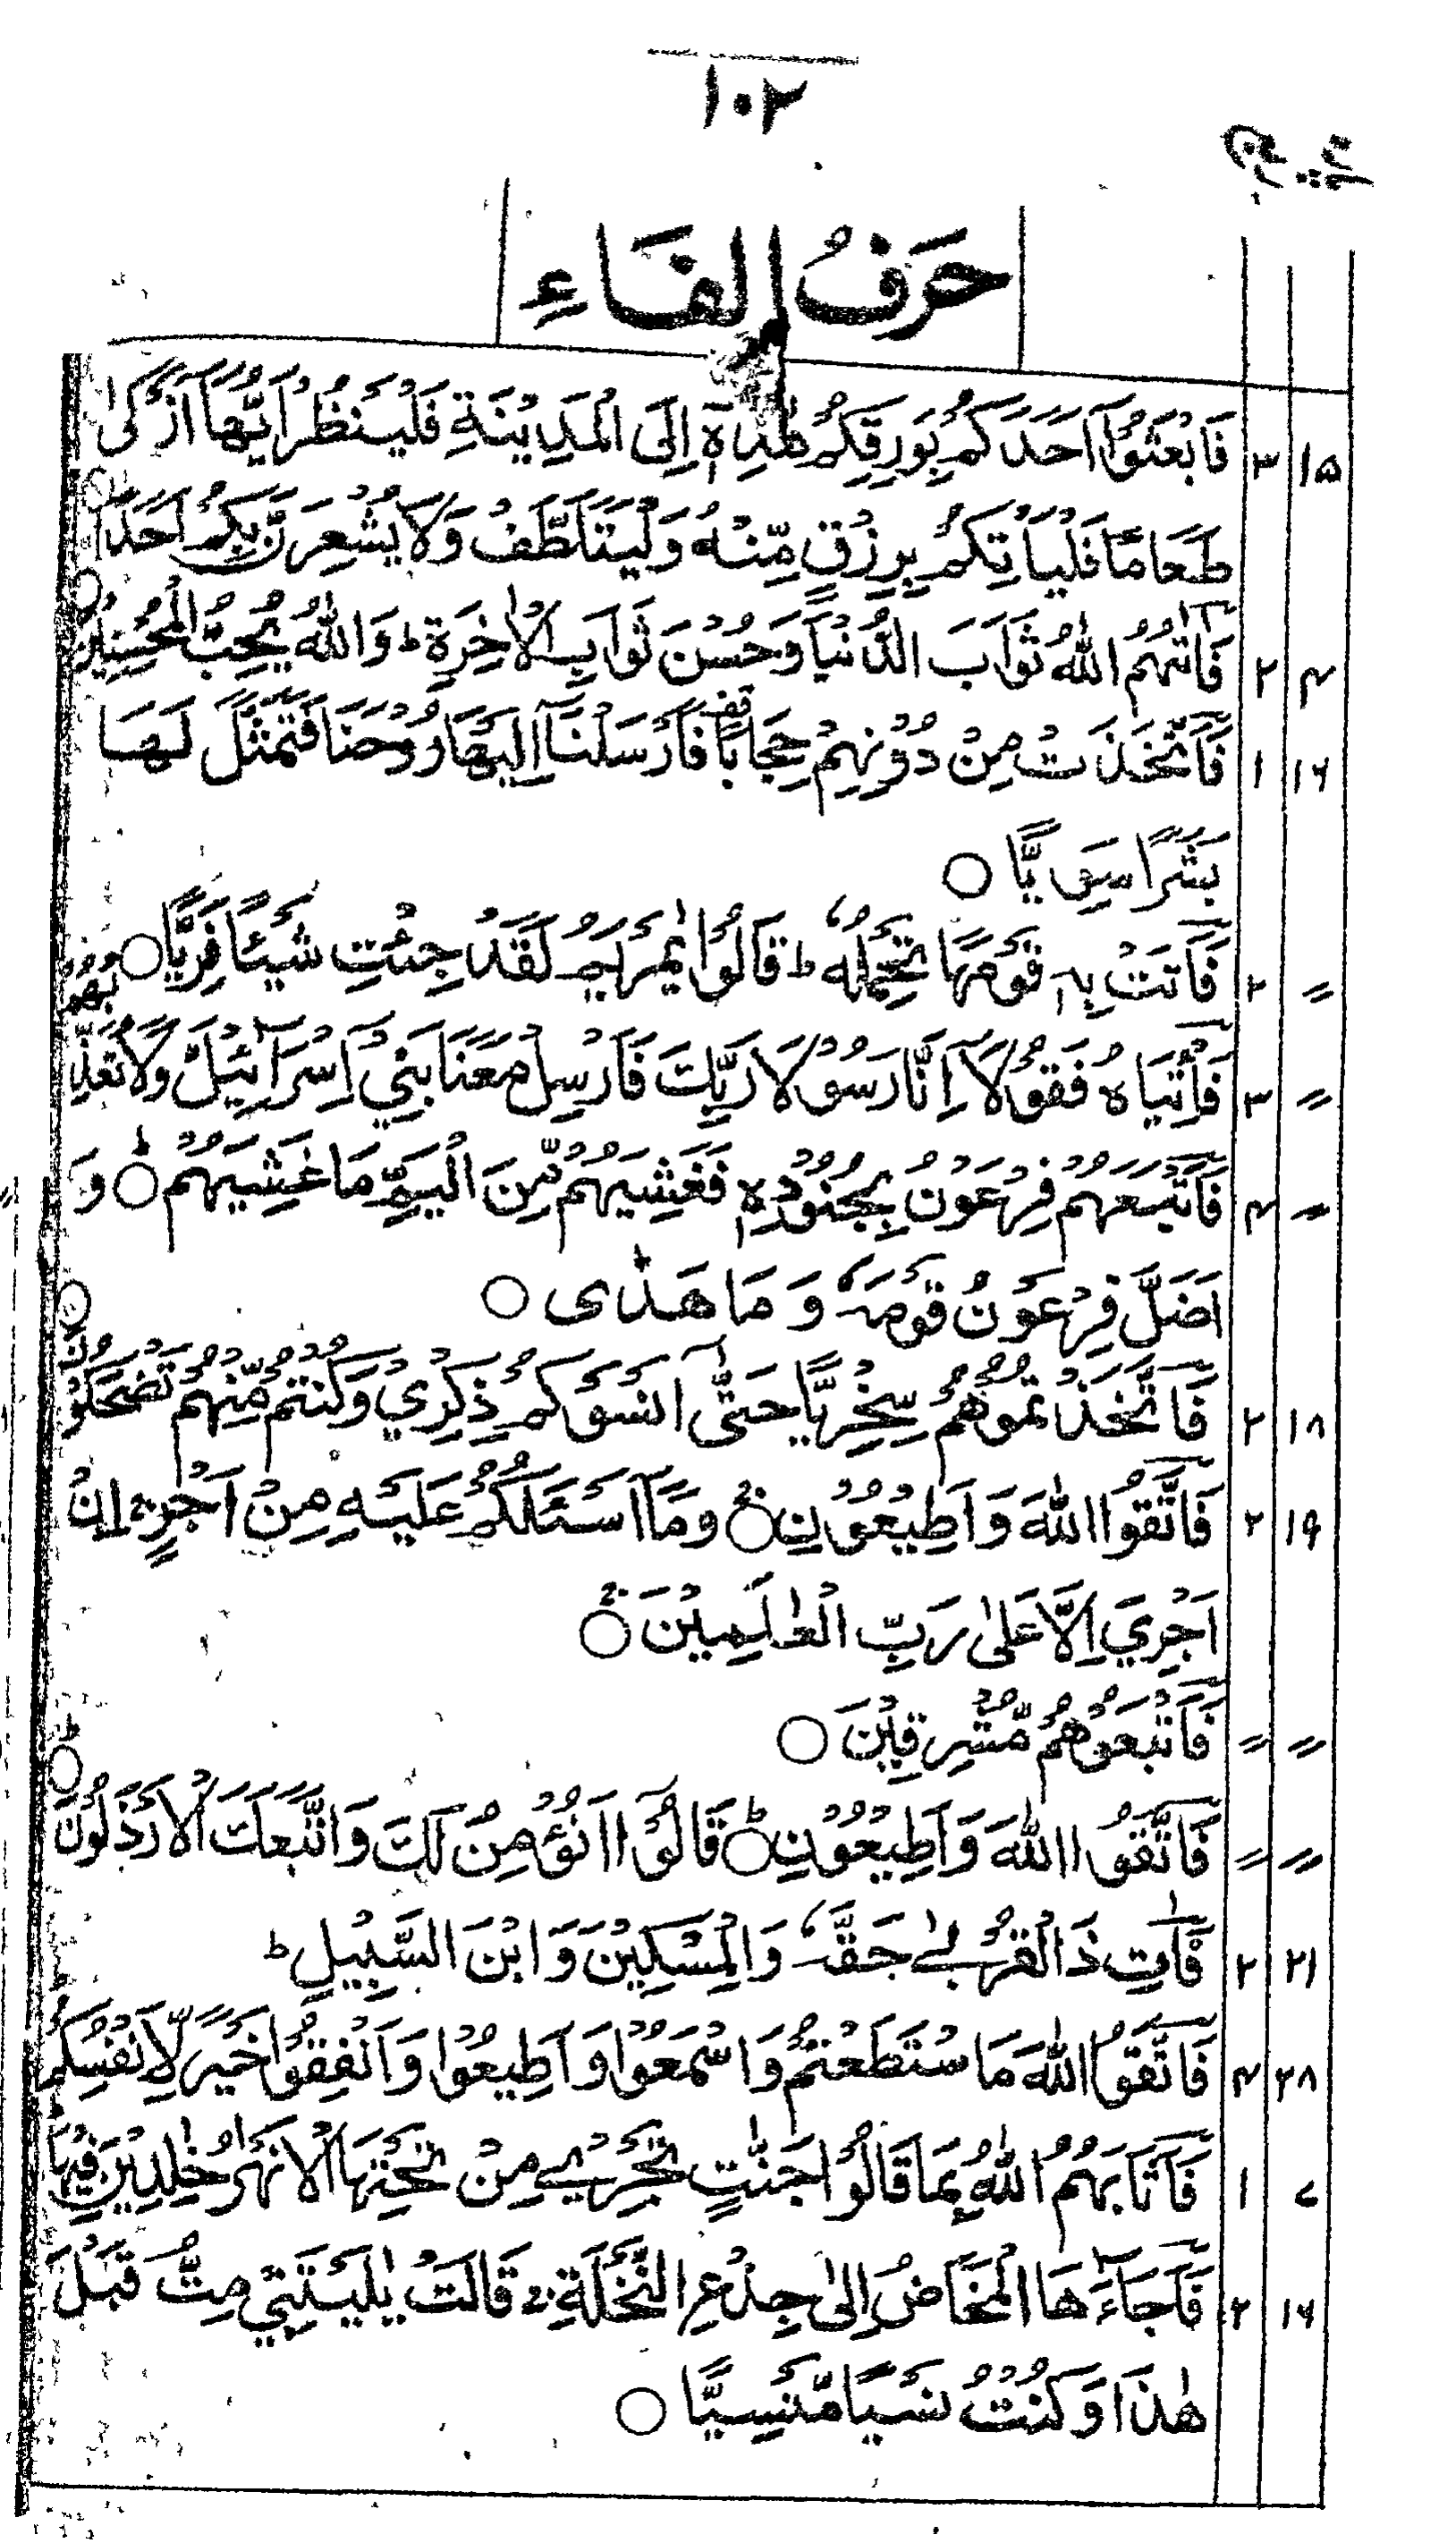 ۱۰۲
حَرفُ الفَاءِ
۱۵ ۳ فَابْعَثُوْٓا اَحَدَكُمْ بِوَرِقِكُمْ هٰذِهٖٓ اِلَى الْمَدِيْنَةِ فَلْيَنْظُرْ اَيُّهَآ اَزْكٰى
طَعَامًا فَلْيَاْتِكُمْ بِرِزْقٍ مِّنْهُ وَلْيَتَلَطَّفْ وَلَا يُشْعِرَنَّ بِكُمْ اَحَدًا ○
۴ ۲ فَاٰتٰهُمُ اللّٰهُ ثَوَابَ الدُّنْيَا وَحُسْنَ ثَوَابِ الْاٰخِرَةِ ط وَاللّٰهُ يُحِبُّ الْمُحْسِنِيْنَ ○
۱۶ ۱ فَاتَّخَذَتْ مِنْ دُوْنِهِمْ حِجَابًا قف فَاَرْسَلْنَآ اِلَيْهَا رُوْحَنَا فَتَمَثَّلَ لَهَا
بَشَرًا سَوِيًّا ○
〃 ۲ فَاَتَتْ بِهٖ قَوْمَهَا تَحْمِلُهٗ ط قَالُوْا يٰمَرْيَمُ لَقَدْ جِئْتِ شَيْئًا فَرِيًّا ○
〃 ۳ فَاْتِيَاهُ فَقُوْلَآ اِنَّا رَسُوْلَا رَبِّكَ فَاَرْسِلْ مَعَنَا بَنِيْٓ اِسْرَآئِيْلَ وَلَا تُعَذِّبْهُمْ
〃 ۴ فَاَتْبَعَهُمْ فِرْعَوْنُ بِجُنُوْدِهٖ فَغَشِيَهُمْ مِّنَ الْيَمِّ مَا غَشِيَهُمْ ○ط وَ
اَضَلَّ فِرْعَوْنُ قَوْمَهٗ وَ مَا هَدٰى ○
۱۸ ۲ فَاتَّخَذْتُمُوْهُمْ سِخْرِيًّا حَتّٰٓى اَنْسَوْكُمْ ذِكْرِيْ وَكُنْتُمْ مِّنْهُمْ تَضْحَكُوْنَ ○
۱۹ ۲ فَاتَّقُوا اللّٰهَ وَ اَطِيْعُوْنِ ○ج وَمَآ اَسْئَلُكُمْ عَلَيْهِ مِنْ اَجْرٍ ج اِنْ
اَجْرِيَ اِلَّا عَلٰى رَبِّ الْعٰلَمِيْنَ ○ج
〃 〃 فَاَتْبَعُوْهُمْ مُّشْرِقِيْنَ ○
〃 〃 فَاتَّقُوا اللّٰهَ وَ اَطِيْعُوْنِ ○ط قَالُوْٓا اَنُؤْمِنُ لَكَ وَاتَّبَعَكَ الْاَرْذَلُوْنَ ○ط
۲۱ ۲ فَاٰتِ ذَا الْقُرْبٰے حَقَّهٗ وَالْمِسْكِيْنَ وَ ابْنَ السَّبِيْلِ ط
۲۸ ۴ فَاتَّقُوا اللّٰهَ مَا سْتَطَعْتُمْ وَ اسْمَعُوْا وَ اَطِيْعُوْا وَ اَنْفِقُوْا خَيْرًا لِّاَنْفُسِكُمْ ط
۷ ۱ فَاَثَابَهُمُ اللّٰهُ بِمَا قَالُوْا جَنّٰتٍ تَجْرِيْ مِنْ تَحْتِهَا الْاَنْهٰرُ خٰلِدِيْنَ فِيْهَا ط
۱۶ ۲ فَاَجَآءَهَا الْمَخَاضُ اِلٰى جِذْعِ النَّخْلَةِ ج قَالَتْ يٰلَيْتَنِيْ مِتُّ قَبْلَ
هٰذَا وَكُنْتُ نَسْيًا مَّنْسِيًّا ○